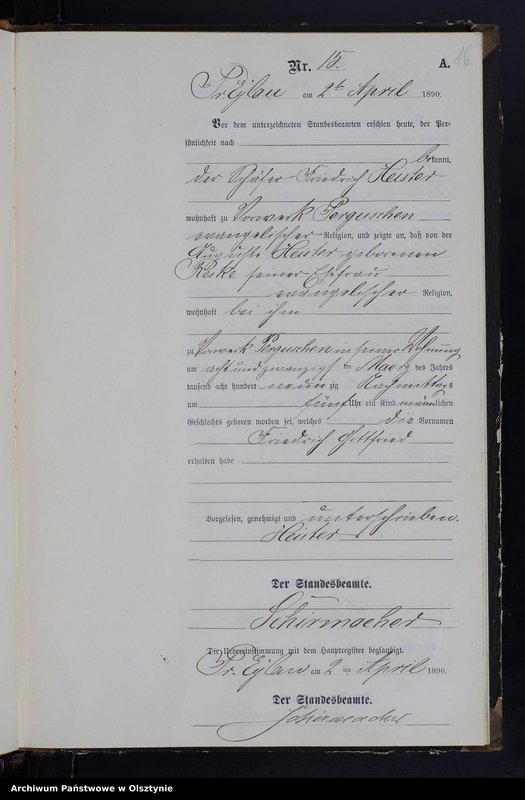 Nr. 15.
A. 16
Pr. Eylau am 2ten April 1890.
Vor dem unterzeichneten Standesbeamten erschien heute, der Per-
sönlichkeit nach
bekannt,
der Schäfer Friedrich Heister
wohnhaft zu Vorwerk Perguschen
evangelischer Religion, und zeigte an, daß von der
Auguste Heister geborenen
Reske seiner Ehefrau
evangelischer Religion,
wohnhaft bei ihm
zu Vorwerk Perguschen in seiner Wohnung
am achtundzwanzigsten ten Maerz des Jahres
tausend acht hundert neunzig Nachmittags
um fünf Uhr ein Kind männlichen
Geschlechts geboren worden sei, welches die Vornamen
Friedrich Gottfried
erhalten habe
Vorgelesen, genehmigt und unterschrieben.
Heister
Der Standesbeamte.
Schirmacher
Die Uebereinstimmung mit dem Hauptregister beglaubigt.
Pr. Eylau am 2 ten April 1890.
Der Standesbeamte.
Schirmacher
Archiwum Państwowe w Olsztynie